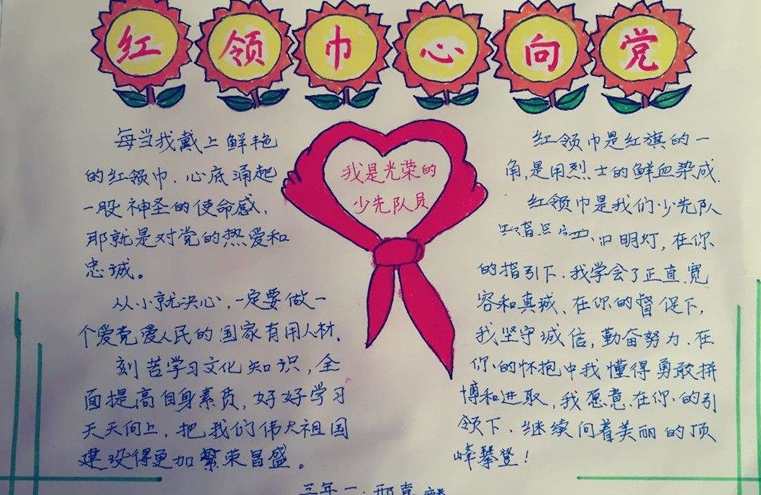 红领巾心向党
每当我戴上鲜艳
的红领巾、心底涌起
一股神圣的使命感,
那就是对党的热爱和
忠诚。
从小就决心,一定要做一
个爱党爱人民的国家有用人材.
刻苦学习文化知识,全
面提高自身素质,好好学习
天天向上,把我们伟大祖国
建设得更加繁荣昌盛。
我是光荣的
少先队员
红领巾是红旗的一
角,是用烈士的鲜血染成.
红领巾是我们少先队
明灯,在你
的指引下.我学会了正直.宽
容和真诚、在你的督促下,
我坚守诚信,勤奋努力.在
你的怀抱中我懂得勇敢拼
搏和进取,我愿意在你的引
领下、继续向着美丽的顶
峰攀登!
三年一